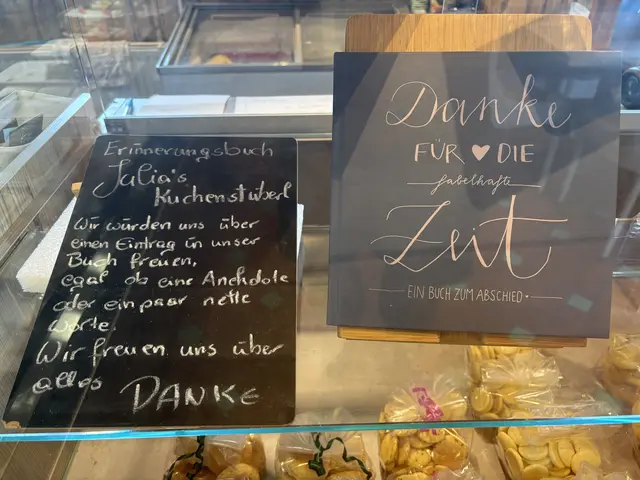 Erinnerungsbuch
Julia's
Kuchenstüberl
Wir würden uns über
einen Eintrag in unser
Buch freuen,
egal ob eine Anekdote
oder ein paar nette
Worte.
Wir freuen uns über
alles DANKE
Danke
FÜR ♥ DIE
fabelhafte
Zeit
EIN BUCH ZUM ABSCHIED